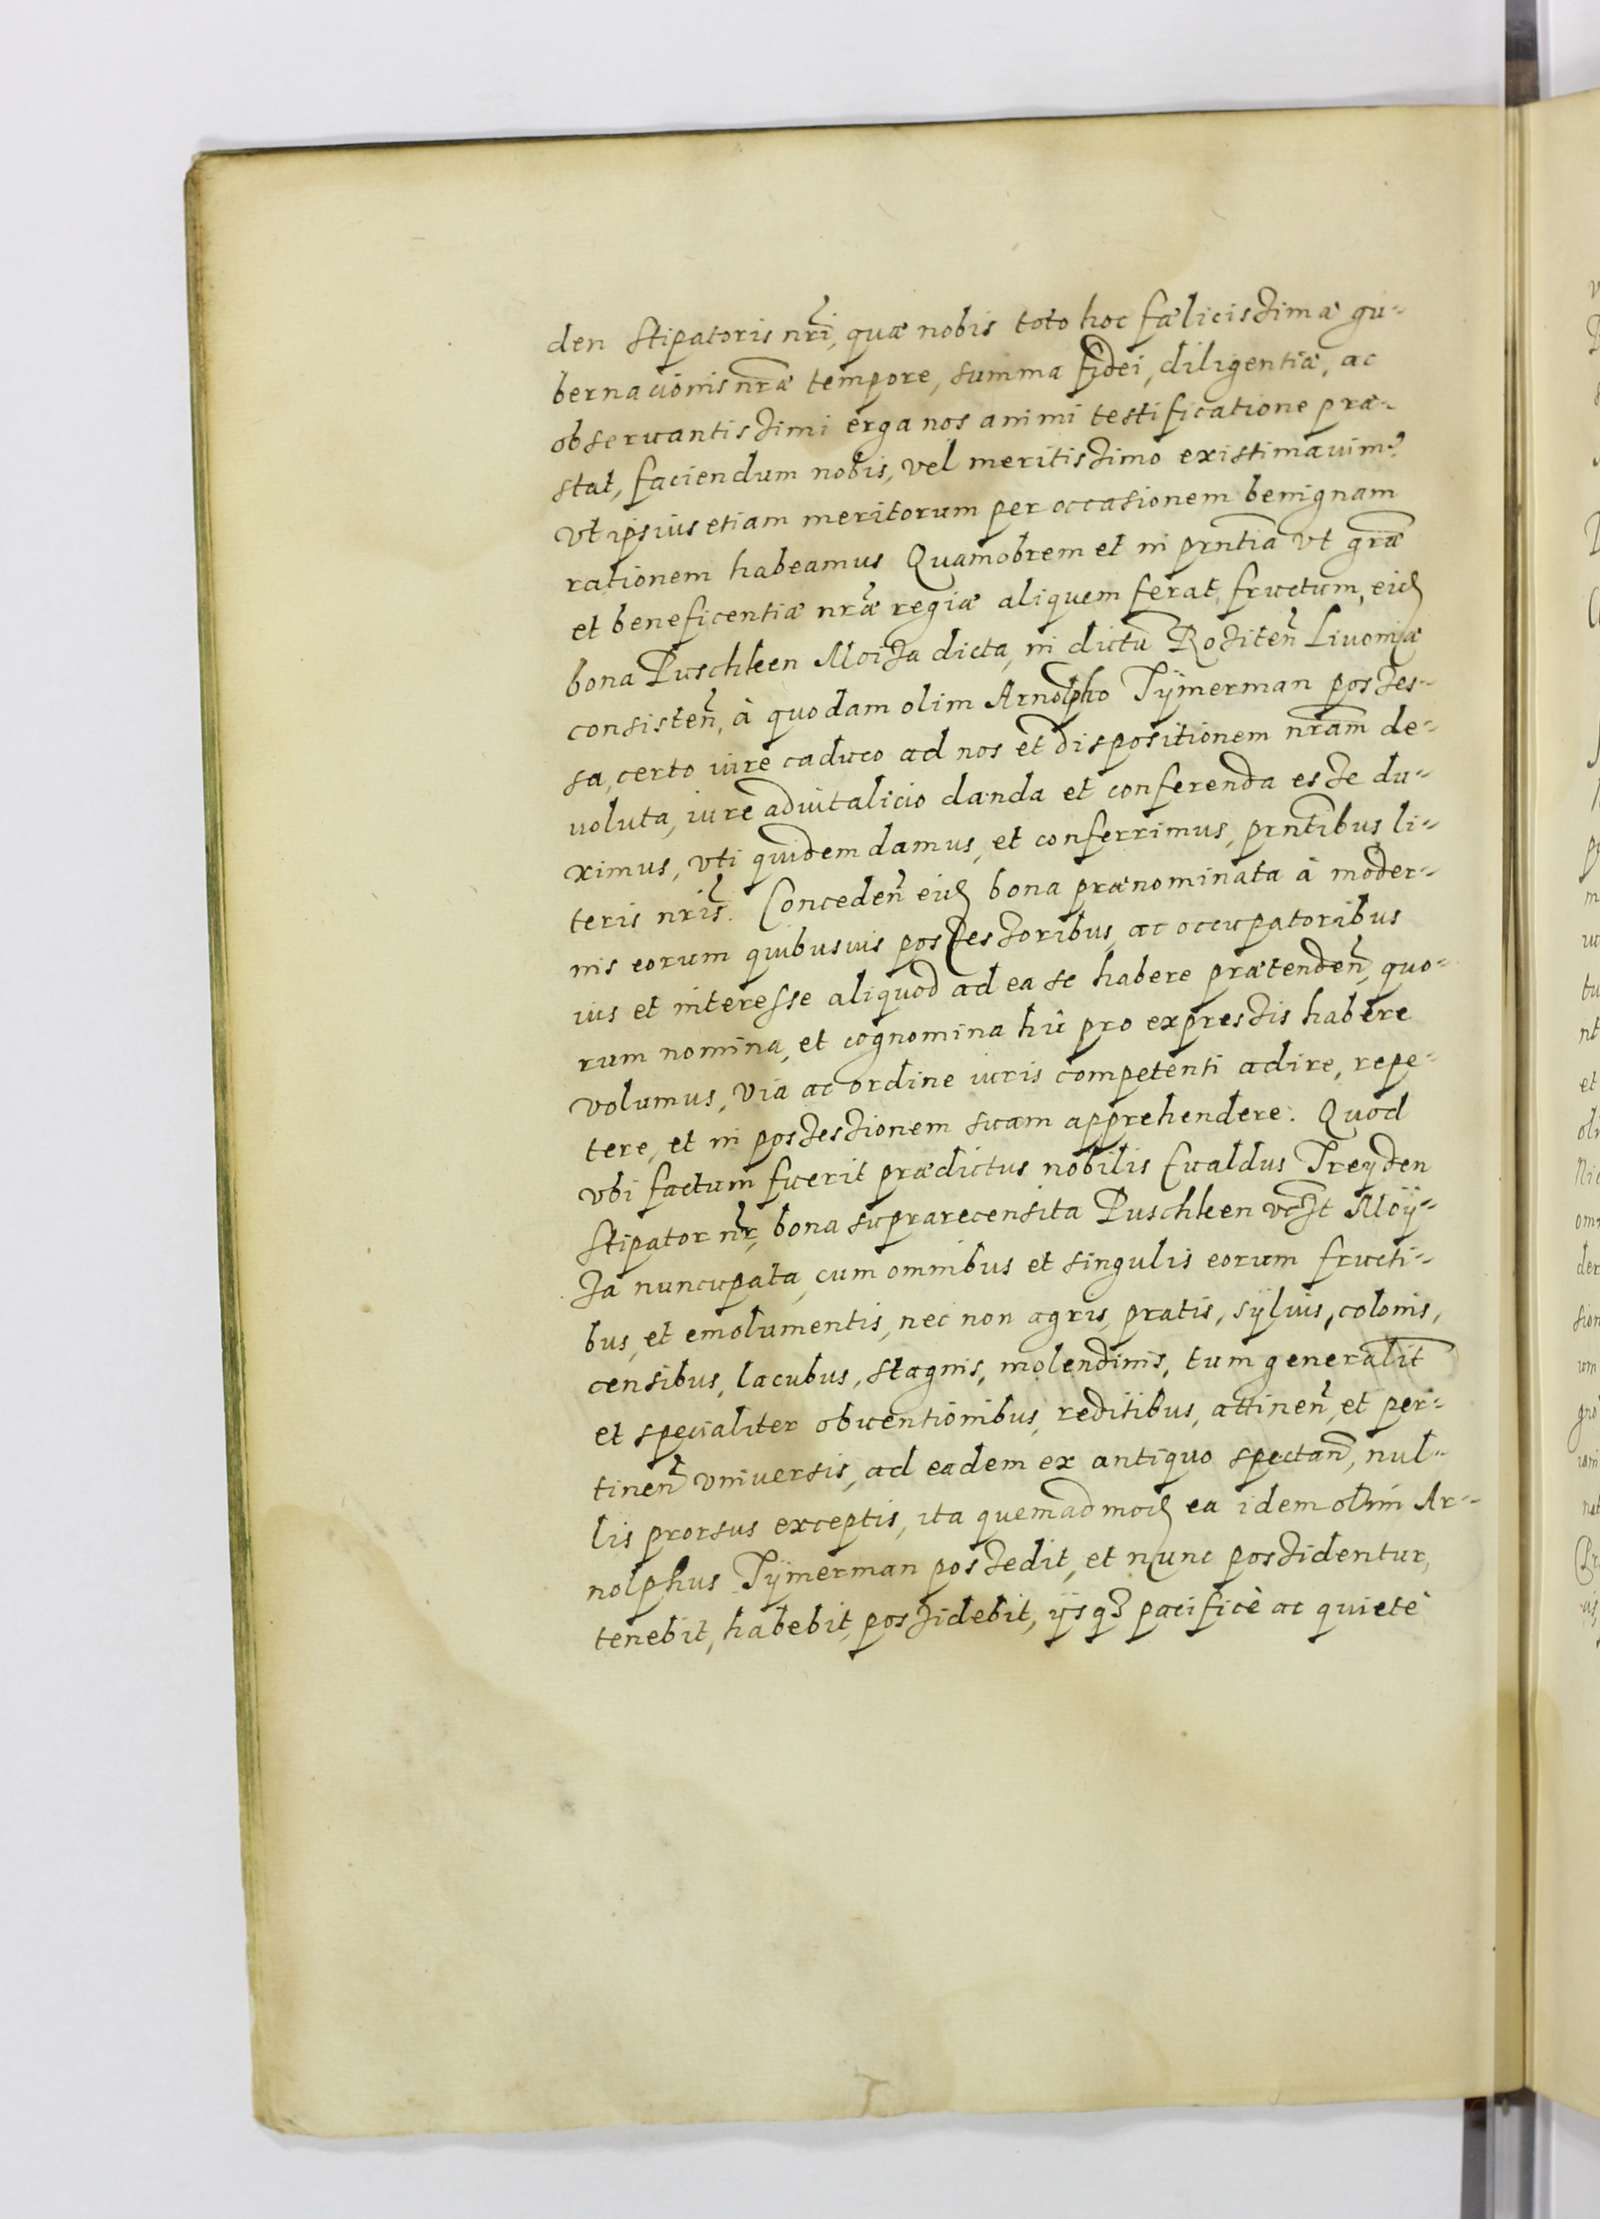 den stipatoris nri, quæ nobis toto hoc fælicissimæ gu-
bernacionis nræ tempore, summa fidei, diligentiæ, ac
obseruantissimi erga nos animi testificatione præ-
stat, faciendum nobis, vel meritissimo existimauim9
vt ipsius etiam meritorum per occasionem benignam
rationem habeamus Quamobrem et in prntia vt græ
et beneficentiæ nræ regiæ aliquem ferat fructum, eid
bona Puschken Moisa dicta, in dictu Rositen Livoniæ
consisten, à quodam olim Arnolpho Tÿmerman posses-
sa, certo iure caduco ad nos et dispositionem nram de-
uoluta, iure aduitalicio danda et conferenda esse du-
ximus, vti quidem damus, et conferrimus, prntibus li-
teris nris. Conceden eid bona prænominata à moder-
nis eorum quibusuis possessoribus, ac occupatoribus
ius et interesse aliquod ad ea se habere prætenden, quo-
rum nomina, et cognomina hic pro expressis habere
volumus, via ac ordine iuris competenti adire, repe-
tere, et in possessionem suam apprehendere. Quod
vbi factum fuerit prædictus nobilis Eualdus Treÿden
Stipator nr, bona suprarecensita Puschken Moÿ-
sa nuncupata, cum omnibus et singulis eorum fructi-
bus, et emolumentis, nec non agris, pratis, sÿluis, colonis,
censibus, lacubus, stagnis, molendinis, tum generalit
et specialiter obuentionibus, reditibus, attinen, et per-
tinen vniuersis, ad eadem ex antiquo spectan, nul-
lis prorsus exceptis, ita quemadmod ea idem olim Ar-
nolphus Tÿmerman possedit, et nunc possidentur,
tenebit, habebit, possidebit, ÿsq3 pacificè ac quietè